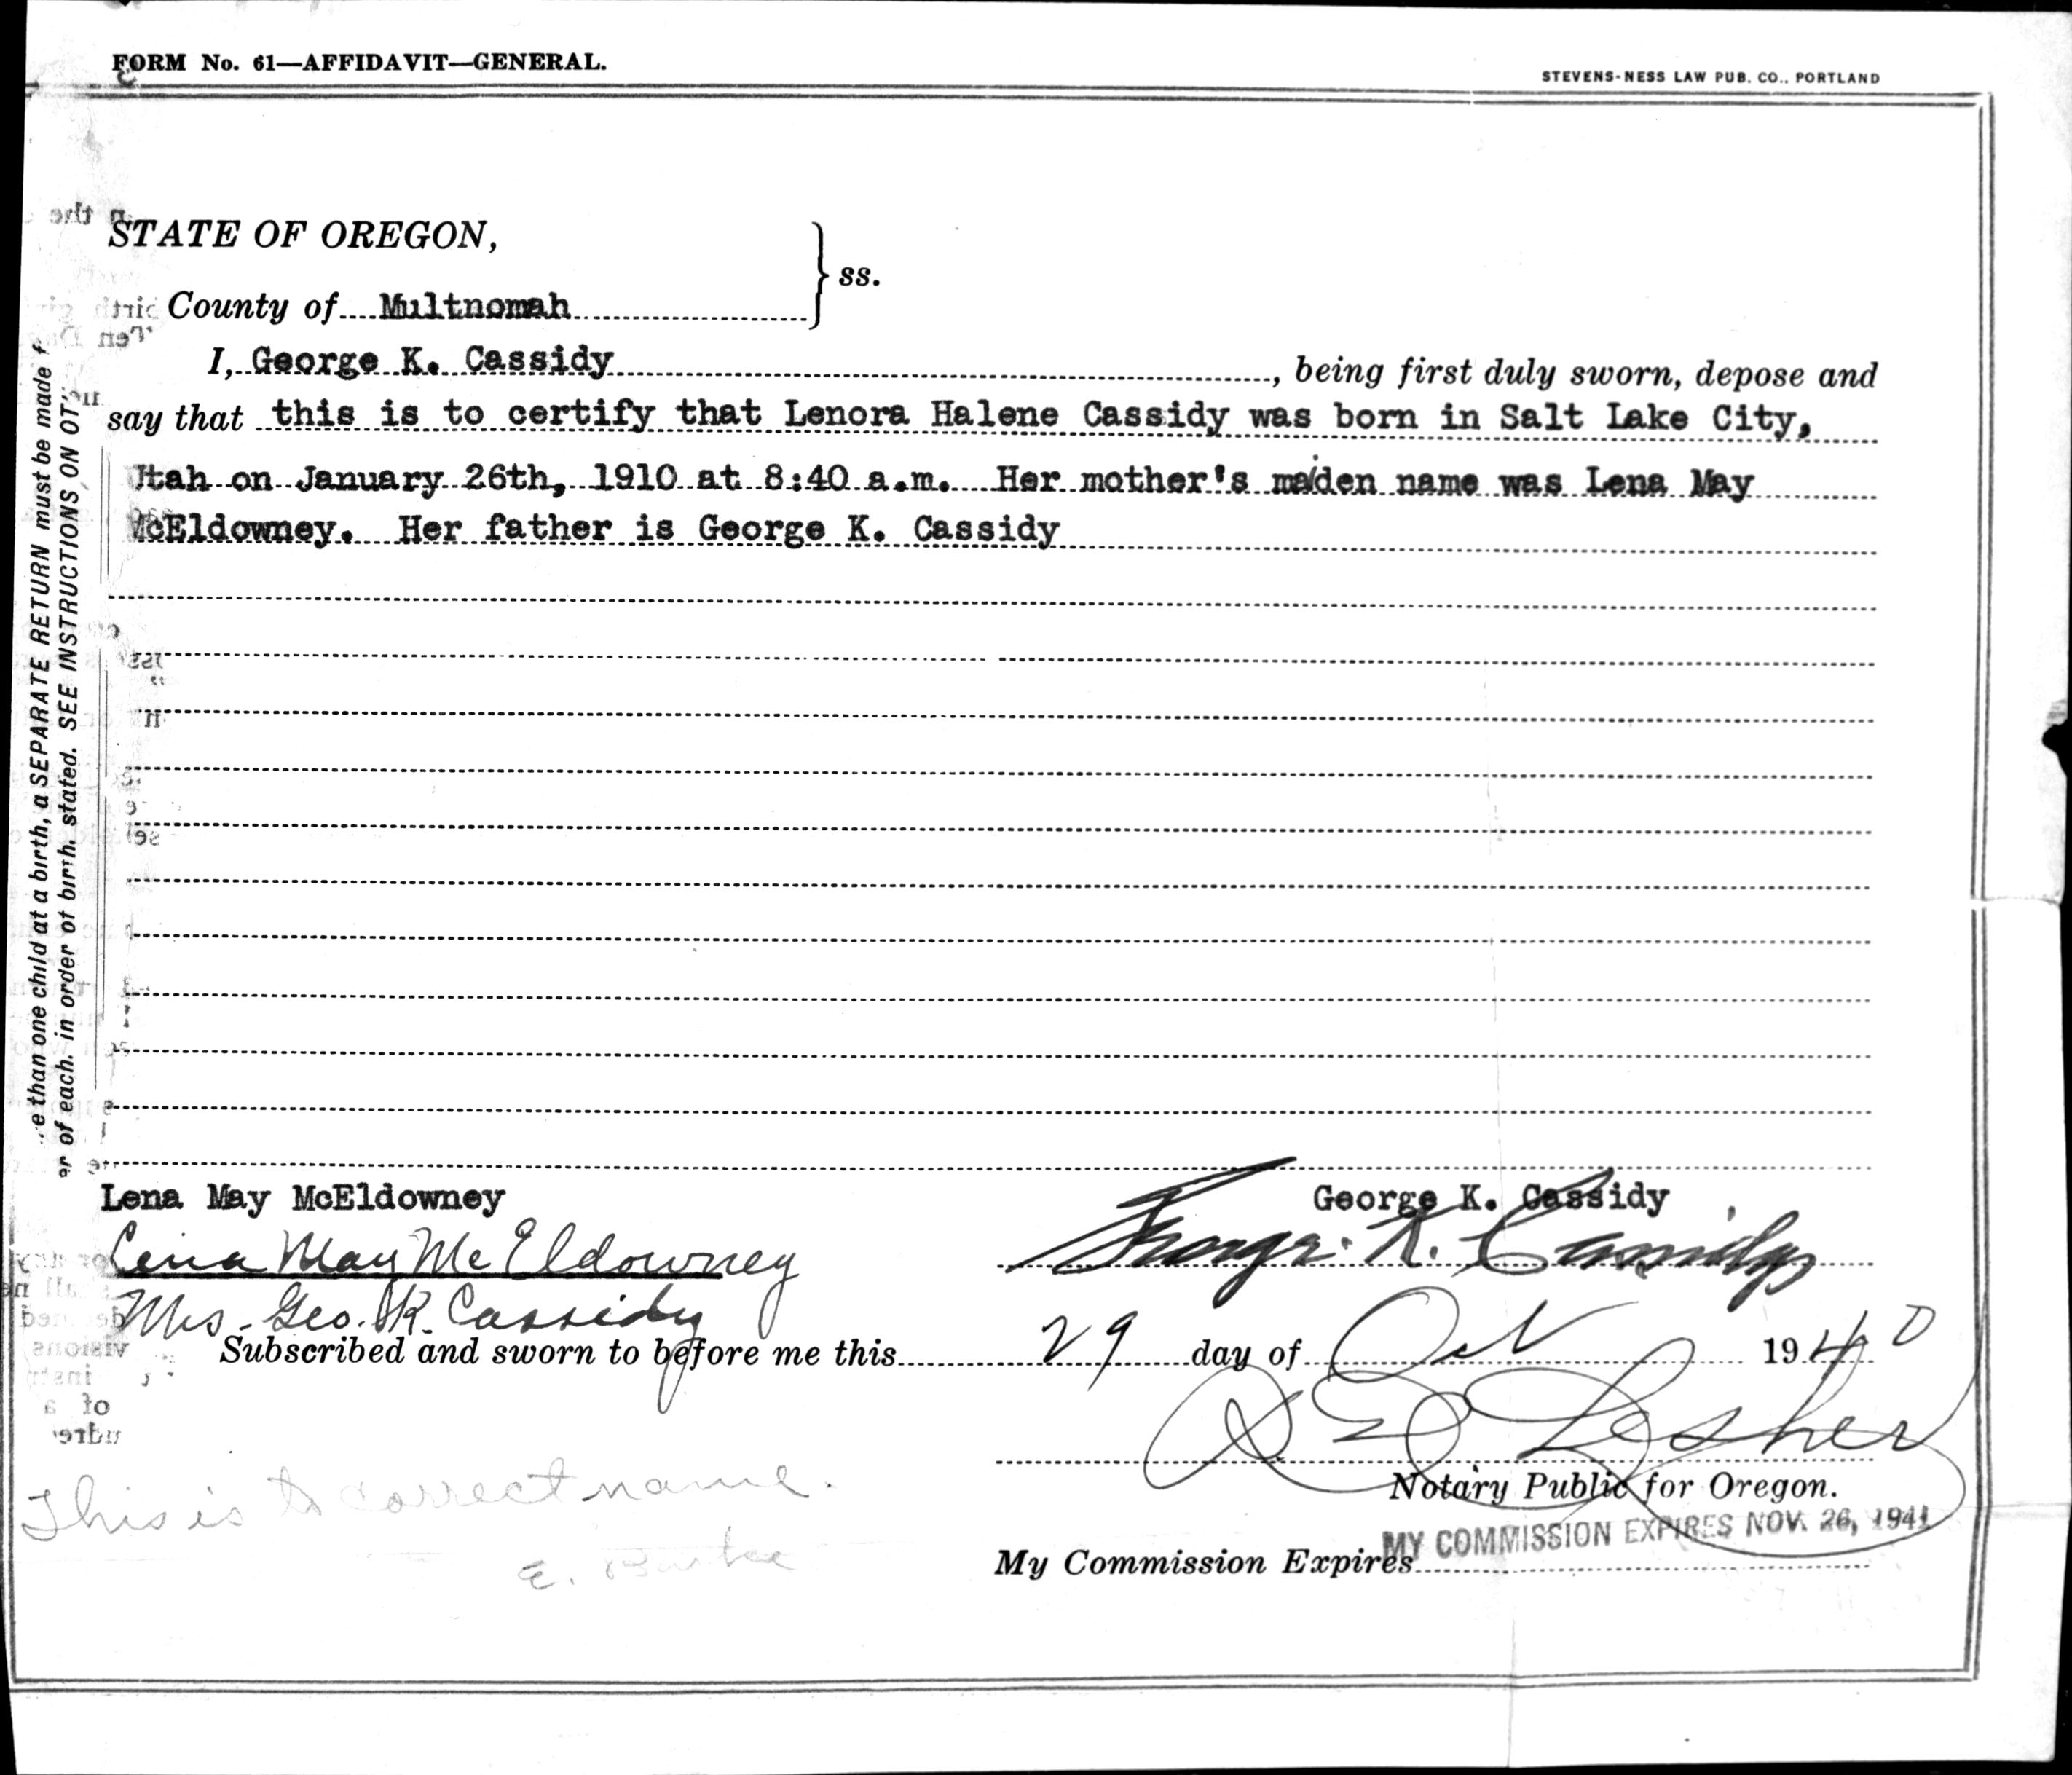 FORM No. 61—AFFIDAVIT—GENERAL.
STEVENS-NESS LAW PUB. CO., PORTLAND
STATE OF OREGON,
ss.
County of Multnomah
I, George K. Cassidy, being first duly sworn, depose and
say that this is to certify that Lenora Halene Cassidy was born in Salt Lake City,
Utah on January 26th, 1910 at 8:40 a.m. Her mother's maiden name was Lena May
McEldowney. Her father is George K. Cassidy
Lena May McEldowney
George K. Cassidy
Lena May McEldowney
George K. Cassidy
Mrs. Geo. K. Cassidy
Subscribed and sworn to before me this 29 day of Oct 1940
Lesher
Notary Public for Oregon.
This is to correct name.
MY COMMISSION EXPIRES NOV. 26, 1941
E.
My Commission Expires
than one child at a birth, a SEPARATE RETURN must be made
of each, in order of birth, stated. SEE INSTRUCTIONS ON